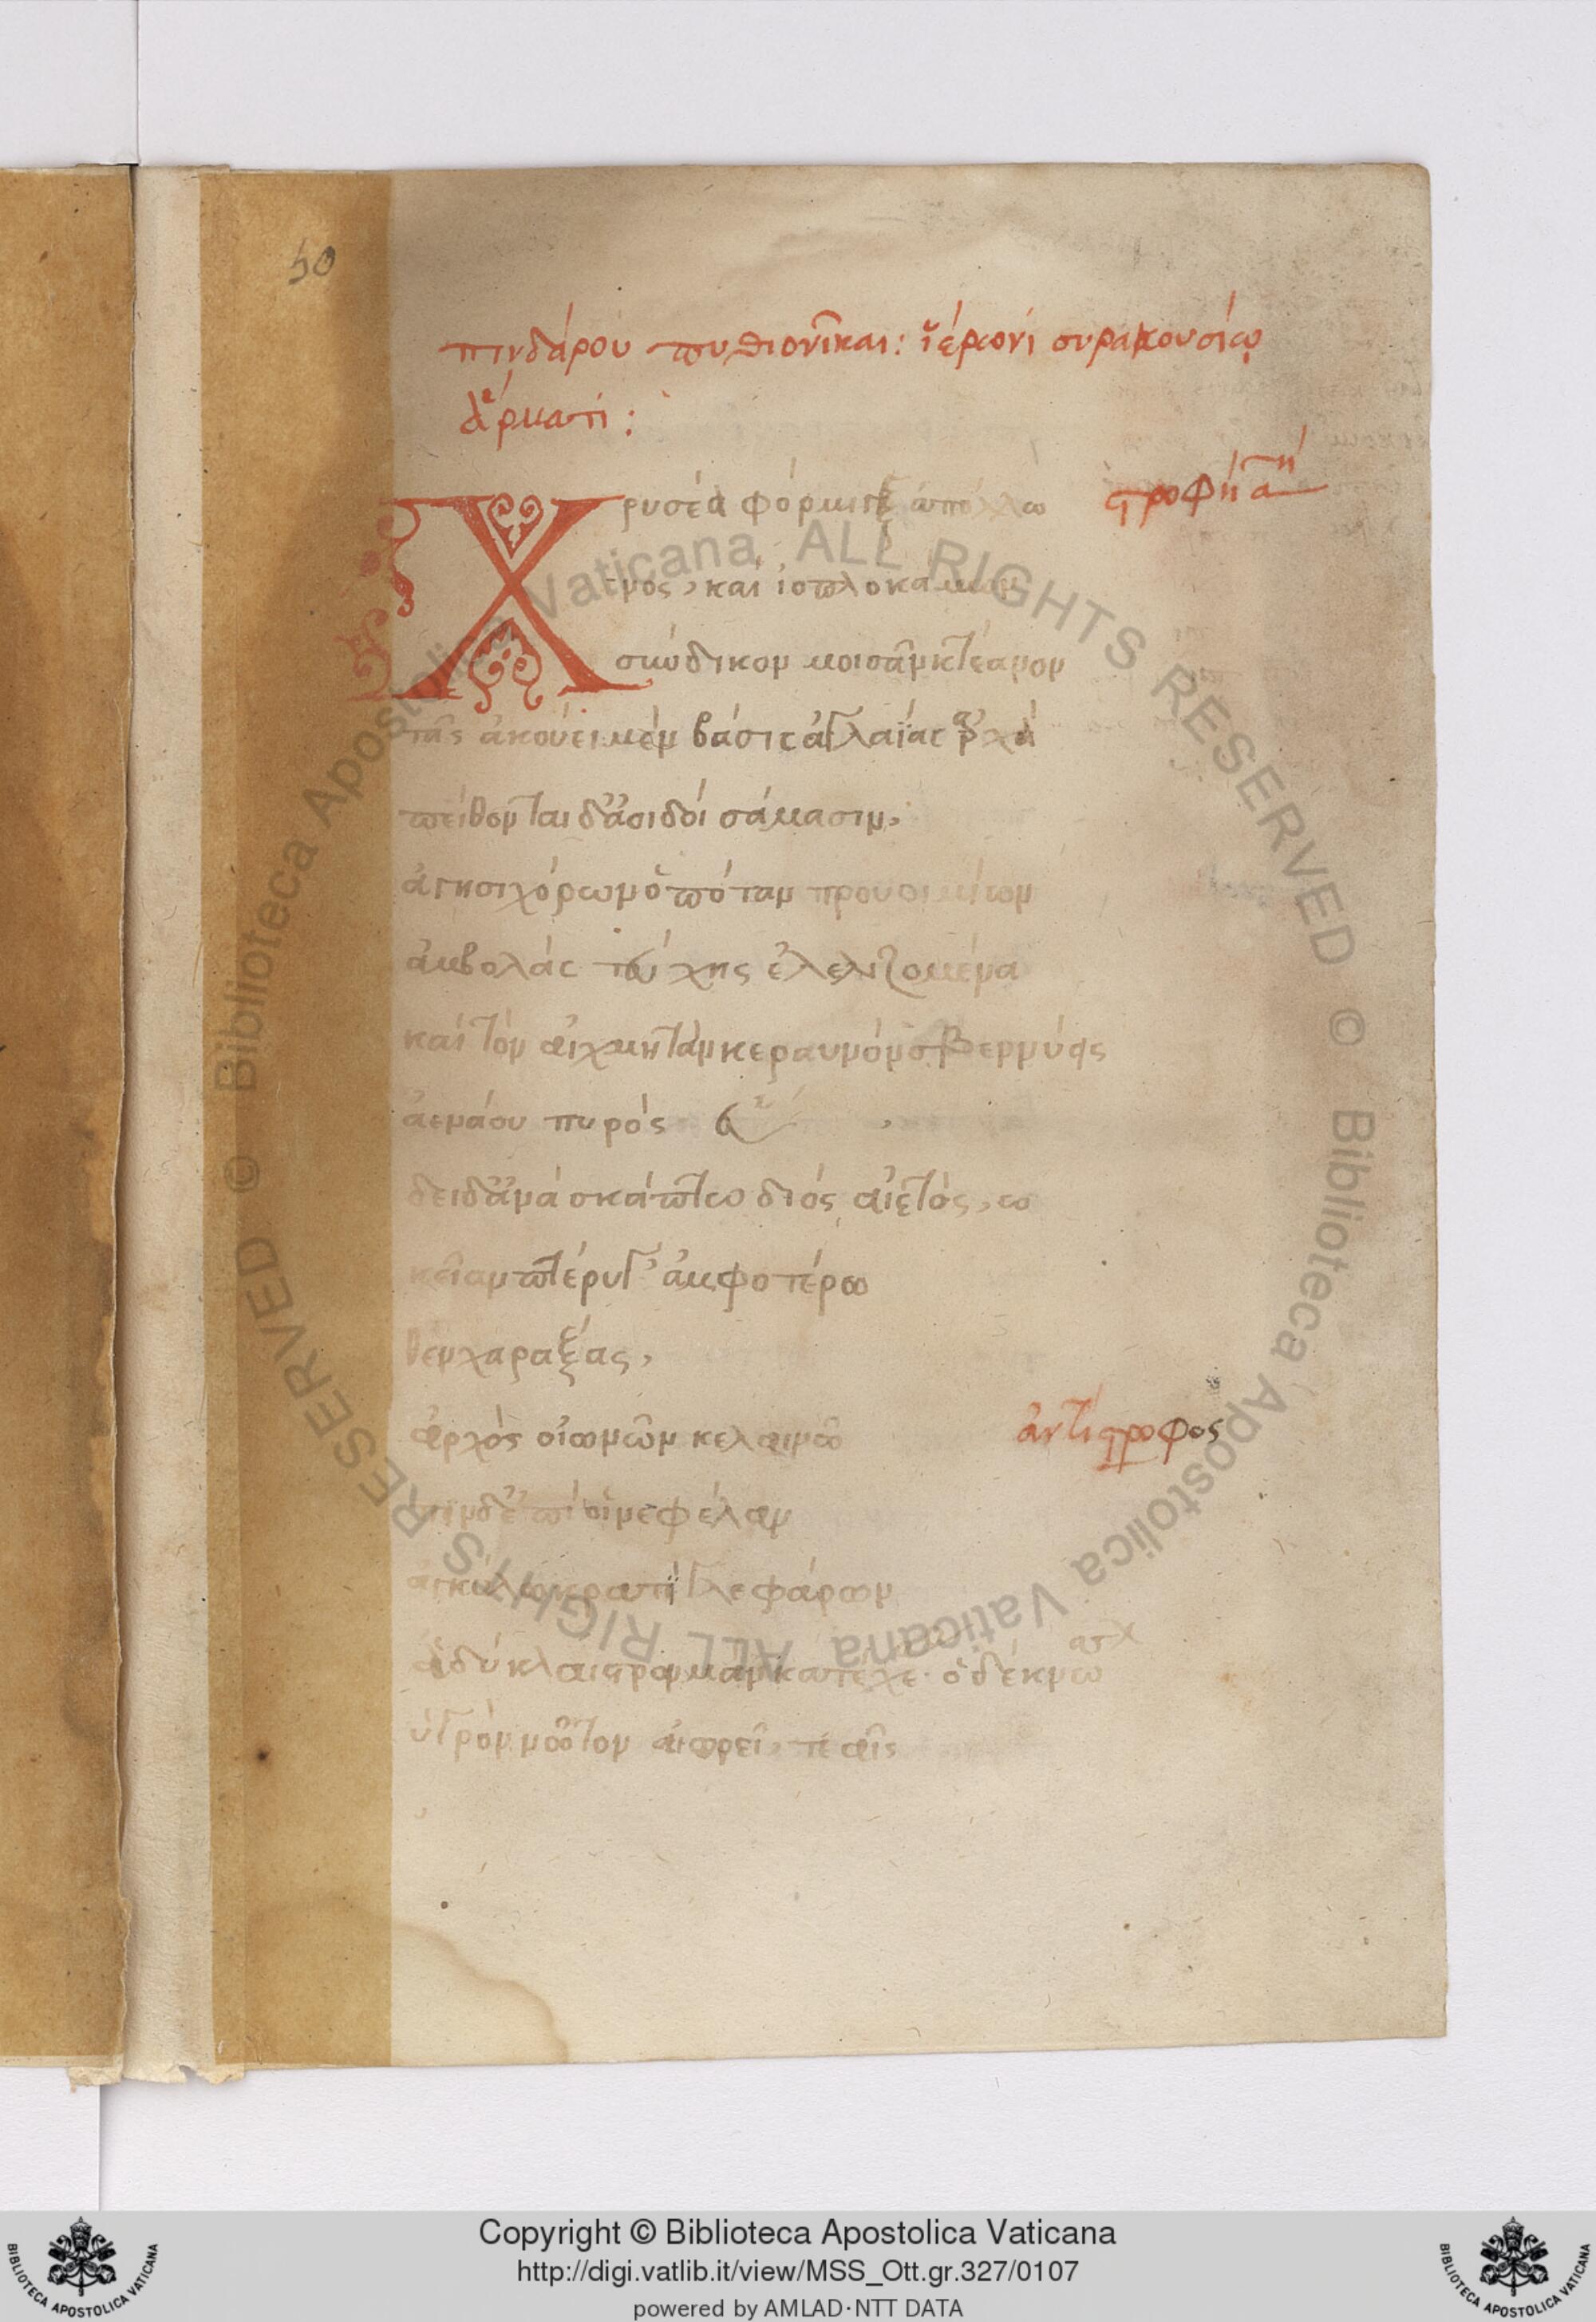 50
πινδάρου πυθιονῖκαι: ἱέρωνι συρακουσίῳ
ἅρματι:
Χρυσέα φόρμιγξ ἀπόλλω στροφὴ α^η
νος, καὶ ἰοπλοκάμων
σύνδικον μοισᾶν κτέανον
τᾶς ἀκούει μὲν βάσις ἀγλαΐας ἀρχὰ
πείθονται δ' ἀοιδοὶ σάμασιν,
ἁγησιχόρων ὁπόταν προυοιμίων
ἀμβολὰς τεύχης ἐλελιζομένα
καὶ τὸν αἰχμητὰν κεραυνὸν σβεννύεις
ἀενάου πυρός
εὕδει δ' ἀνὰ σκάπτω διὸς αἰετός, ὠ
κεῖαν πτέρυγ' ἀμφοτέρω
θεν χαλάξας,
ἀρχὸς οἰωνῶν κελαινῶ ἀντίστροφος
πιν δ' ἐπί οἱ νεφέλαν
ἀγκύλω κρατὶ γλεφάρων
ἁδὺ κλαῖστρον κατέχει· ὁ δὲ κνώ
ὑγρὸν νῶτον αἰωρεῖ, τεαῖς
Copyright © Biblioteca Apostolica Vaticana
http://digi.vatlib.it/view/MSS_Ott.gr.327/0107
powered by AMLAD·NTT DATA
BIBLIOTECA APOSTOLICA VATICANA
BIBLIOTECA APOSTOLICA VATICANA
© Biblioteca Apostolica Vaticana ALL RIGHTS RESERVED © Biblioteca Apostolica Vaticana ALL RIGHTS RESERVED